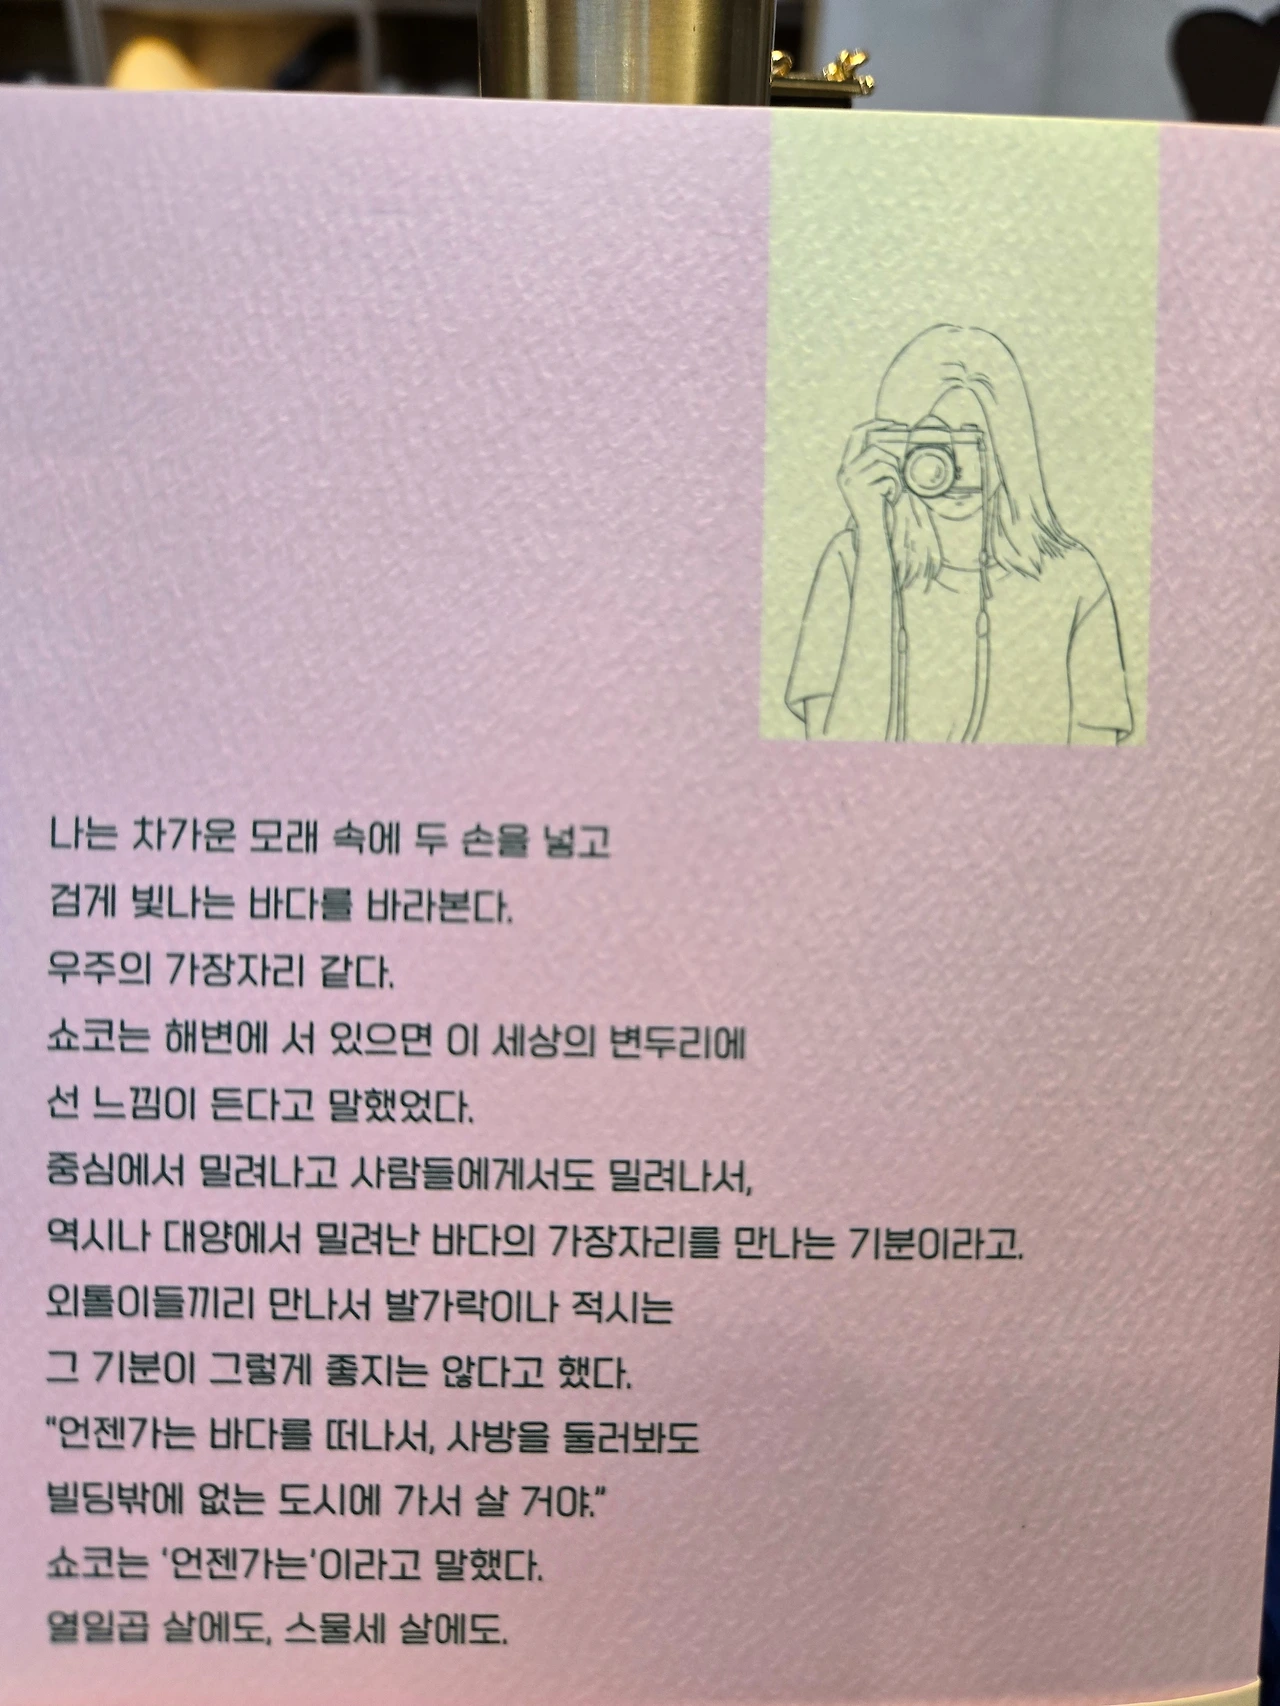 나는 차가운 모래 속에 두 손을 넣고
검게 빛나는 바다를 바라본다.
우주의 가장자리 같다.
쇼코는 해변에 서 있으면 이 세상의 변두리에
선 느낌이 든다고 말했었다.
중심에서 밀려나고 사람들에게서도 밀려나서,
역시나 대양에서 밀려난 바다의 가장자리를 만나는 기분이라고.
외톨이들끼리 만나서 발가락이나 적시는
그 기분이 그렇게 좋지는 않다고 했다.
"언젠가는 바다를 떠나서, 사방을 둘러봐도
빌딩밖에 없는 도시에 가서 살 거야."
쇼코는 '언젠가는'이라고 말했다.
열일곱 살에도, 스물세 살에도.